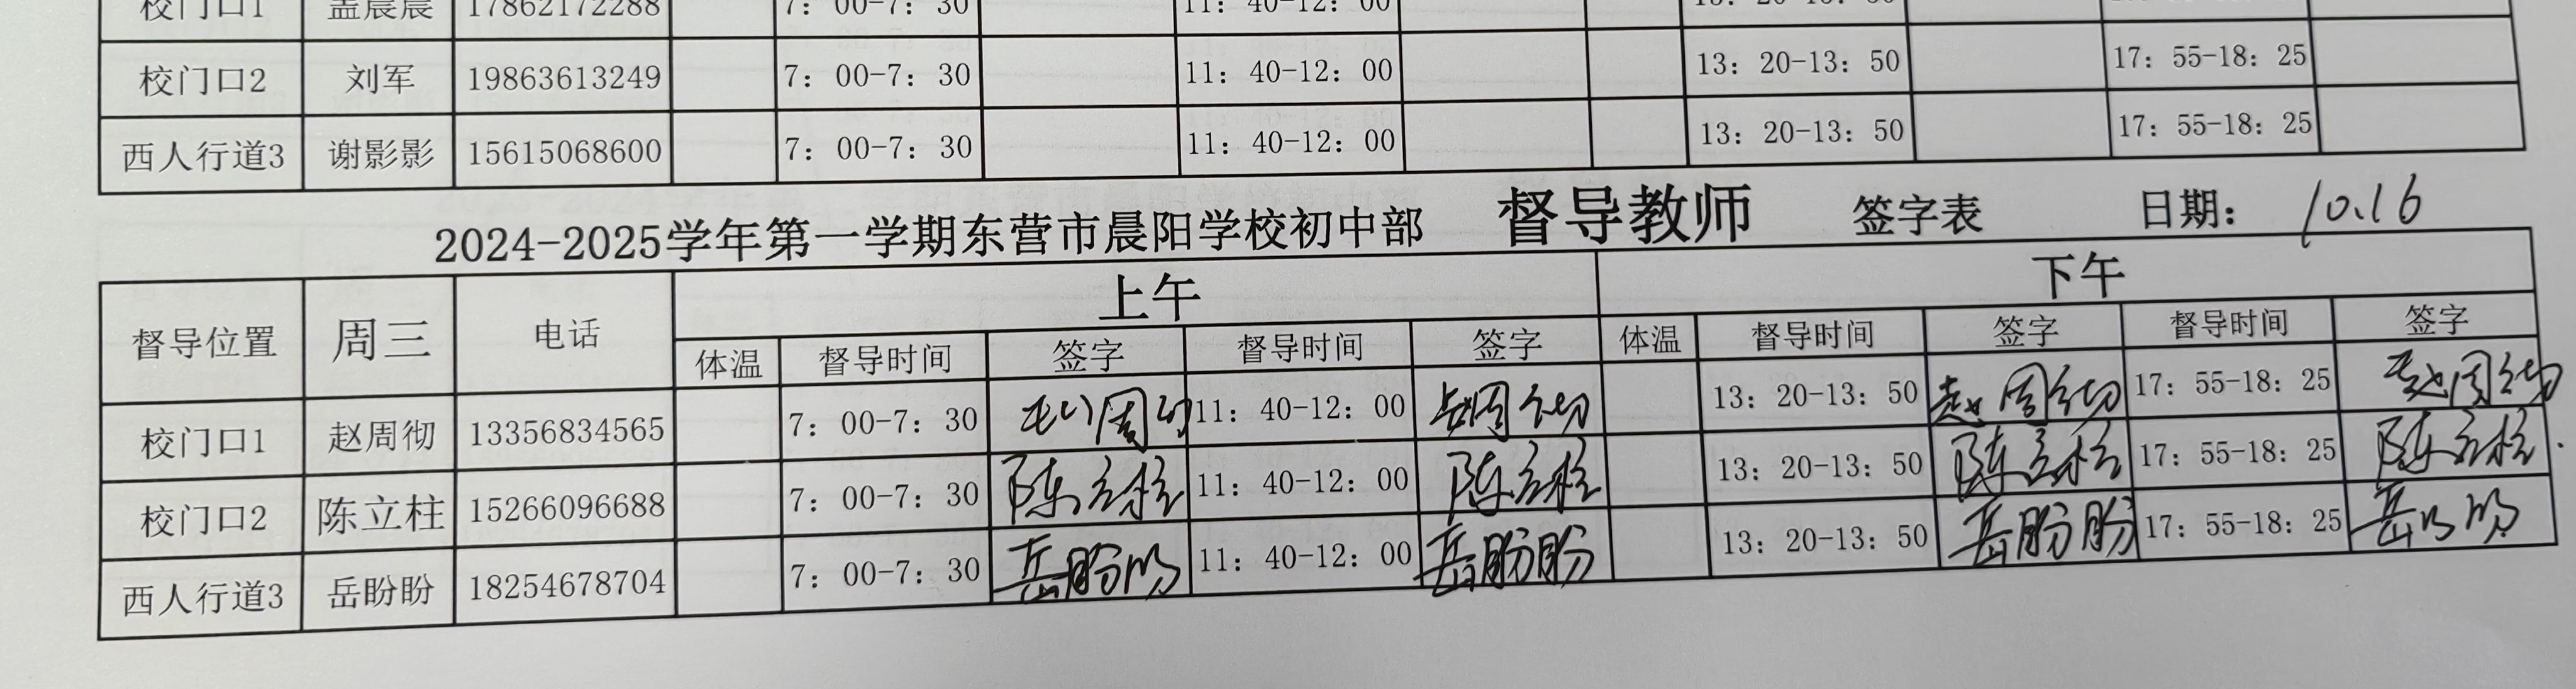 校门口1 孟晨晨 17862172288 7：00-7：30 11：40-12：00
校门口2 刘军 19863613249 7：00-7：30 11：40-12：00 13：20-13：50 17：55-18：25
西人行道3 谢影影 15615068600 7：00-7：30 11：40-12：00 13：20-13：50 17：55-18：25
2024-2025学年第一学期东营市晨阳学校初中部 督导教师 签字表 日期：10.16
督导位置 周三 电话 上午 下午
体温 督导时间 签字 督导时间 签字 体温 督导时间 签字 督导时间 签字
校门口1 赵周彻 13356834565 7：00-7：30 赵周彻 11：40-12：00 赵周彻 13：20-13：50 赵周彻 17：55-18：25 赵周彻
校门口2 陈立柱 15266096688 7：00-7：30 陈立柱 11：40-12：00 陈立柱 13：20-13：50 陈立柱 17：55-18：25 陈立柱
西人行道3 岳盼盼 18254678704 7：00-7：30 岳盼盼 11：40-12：00 岳盼盼 13：20-13：50 岳盼盼 17：55-18：25 岳盼盼